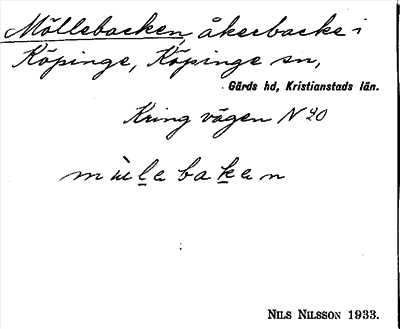 Möllebacken, åkerbacke i
Köpinge, Köpinge sn,
Gärds hd, Kristianstads län.
Kring vägen N 20
mùlebaken
NILS NILSSON 1933.